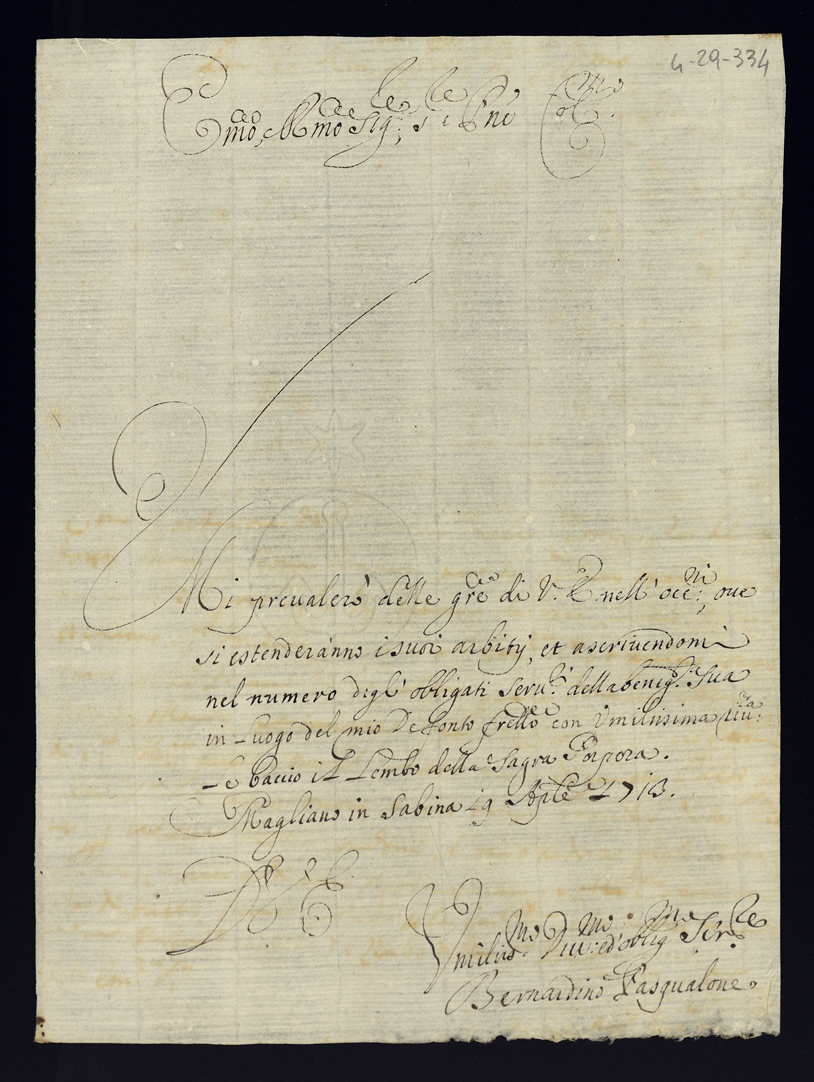 4-29-334
Emo, Rmo Sig:re, Sig:re Pne Col:mo
Mi prevalerò delle gre di V. E. nell' occ:ni, oue
si estenderanno i suoi arbitrj, et ascriuendomi
nel numero degl' obligati seru:ri della benig:tà Sua
in Luogo del mio Defonto frello con Vmilissima riu:za
Le baccio il Lembo della Sagra Porpora.
Magliano in Sabina 19 Aple 1713.
D V. E.
Vmilis:mo Diu:mo ed oblig:mo Ser:re
Bernardino Pasqualone.